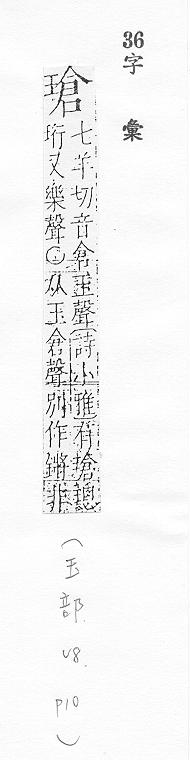 36字彙
瑲
七羊切音倉玉聲詩小雅有瑲璁
珩又樂聲○从玉倉聲別作鏘非
(玉部 v8. p10)